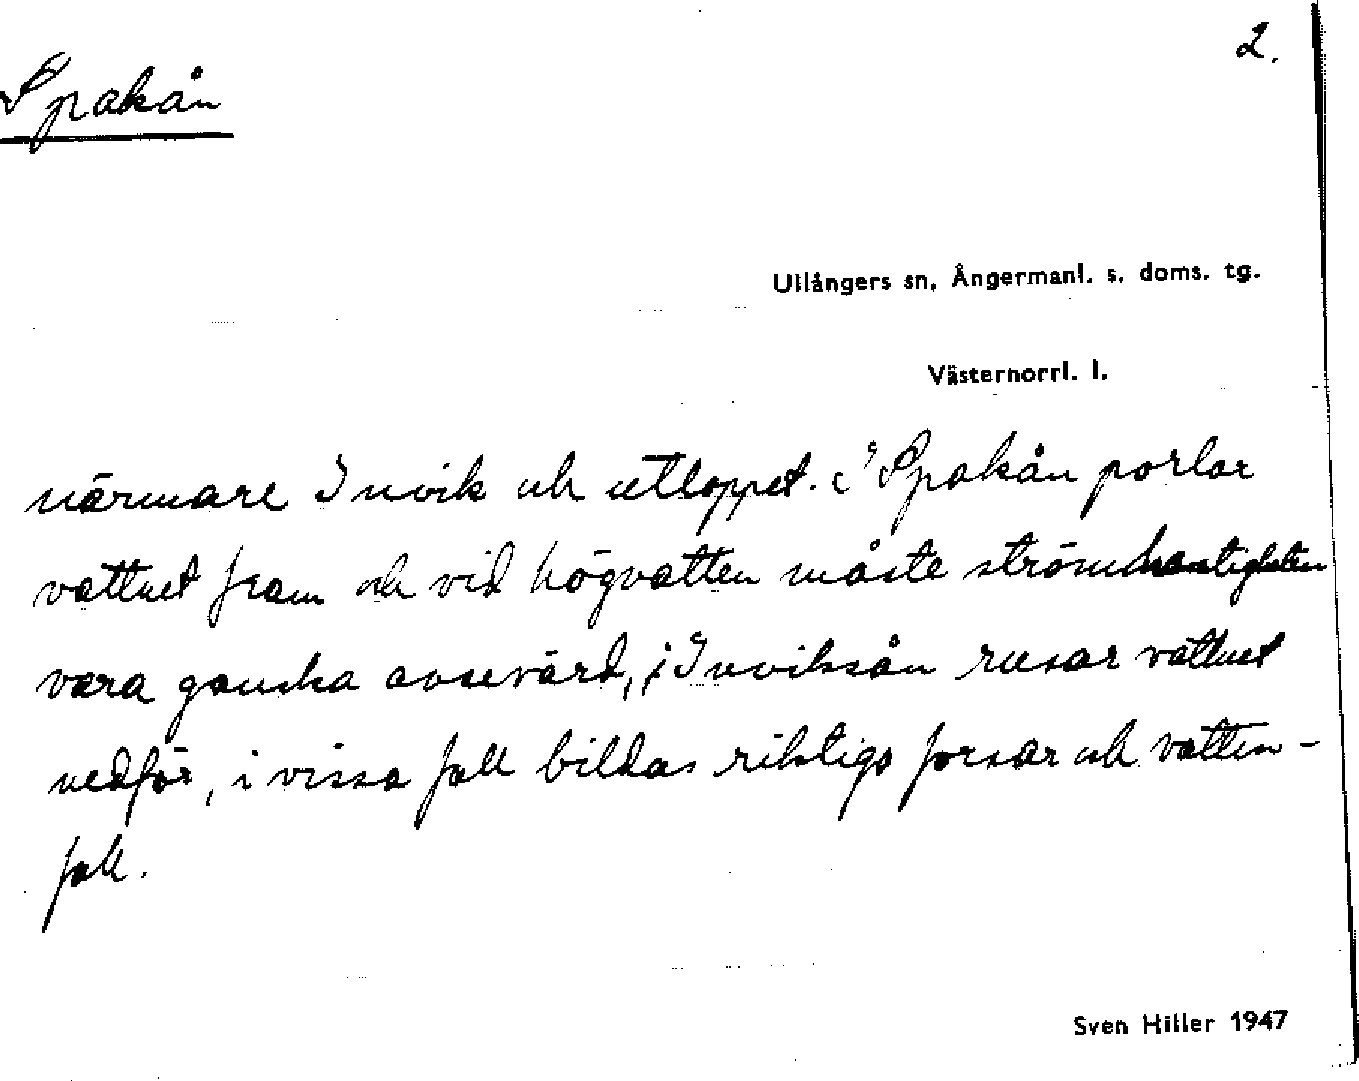 2.
Spakån
Ullångers sn, Ångermanl. s. doms. tg.
Västernorrl. l.
närmare Invik och utloppet. I Spakån porlar
vattnet fram och vid högvatten måste strömhastigheten
vara ganska avsevärd, i Inviksån rusar vattnet
nedför, i vissa fall bildas riktiga forsar och vatten-
fall.
Sven Hiller 1947